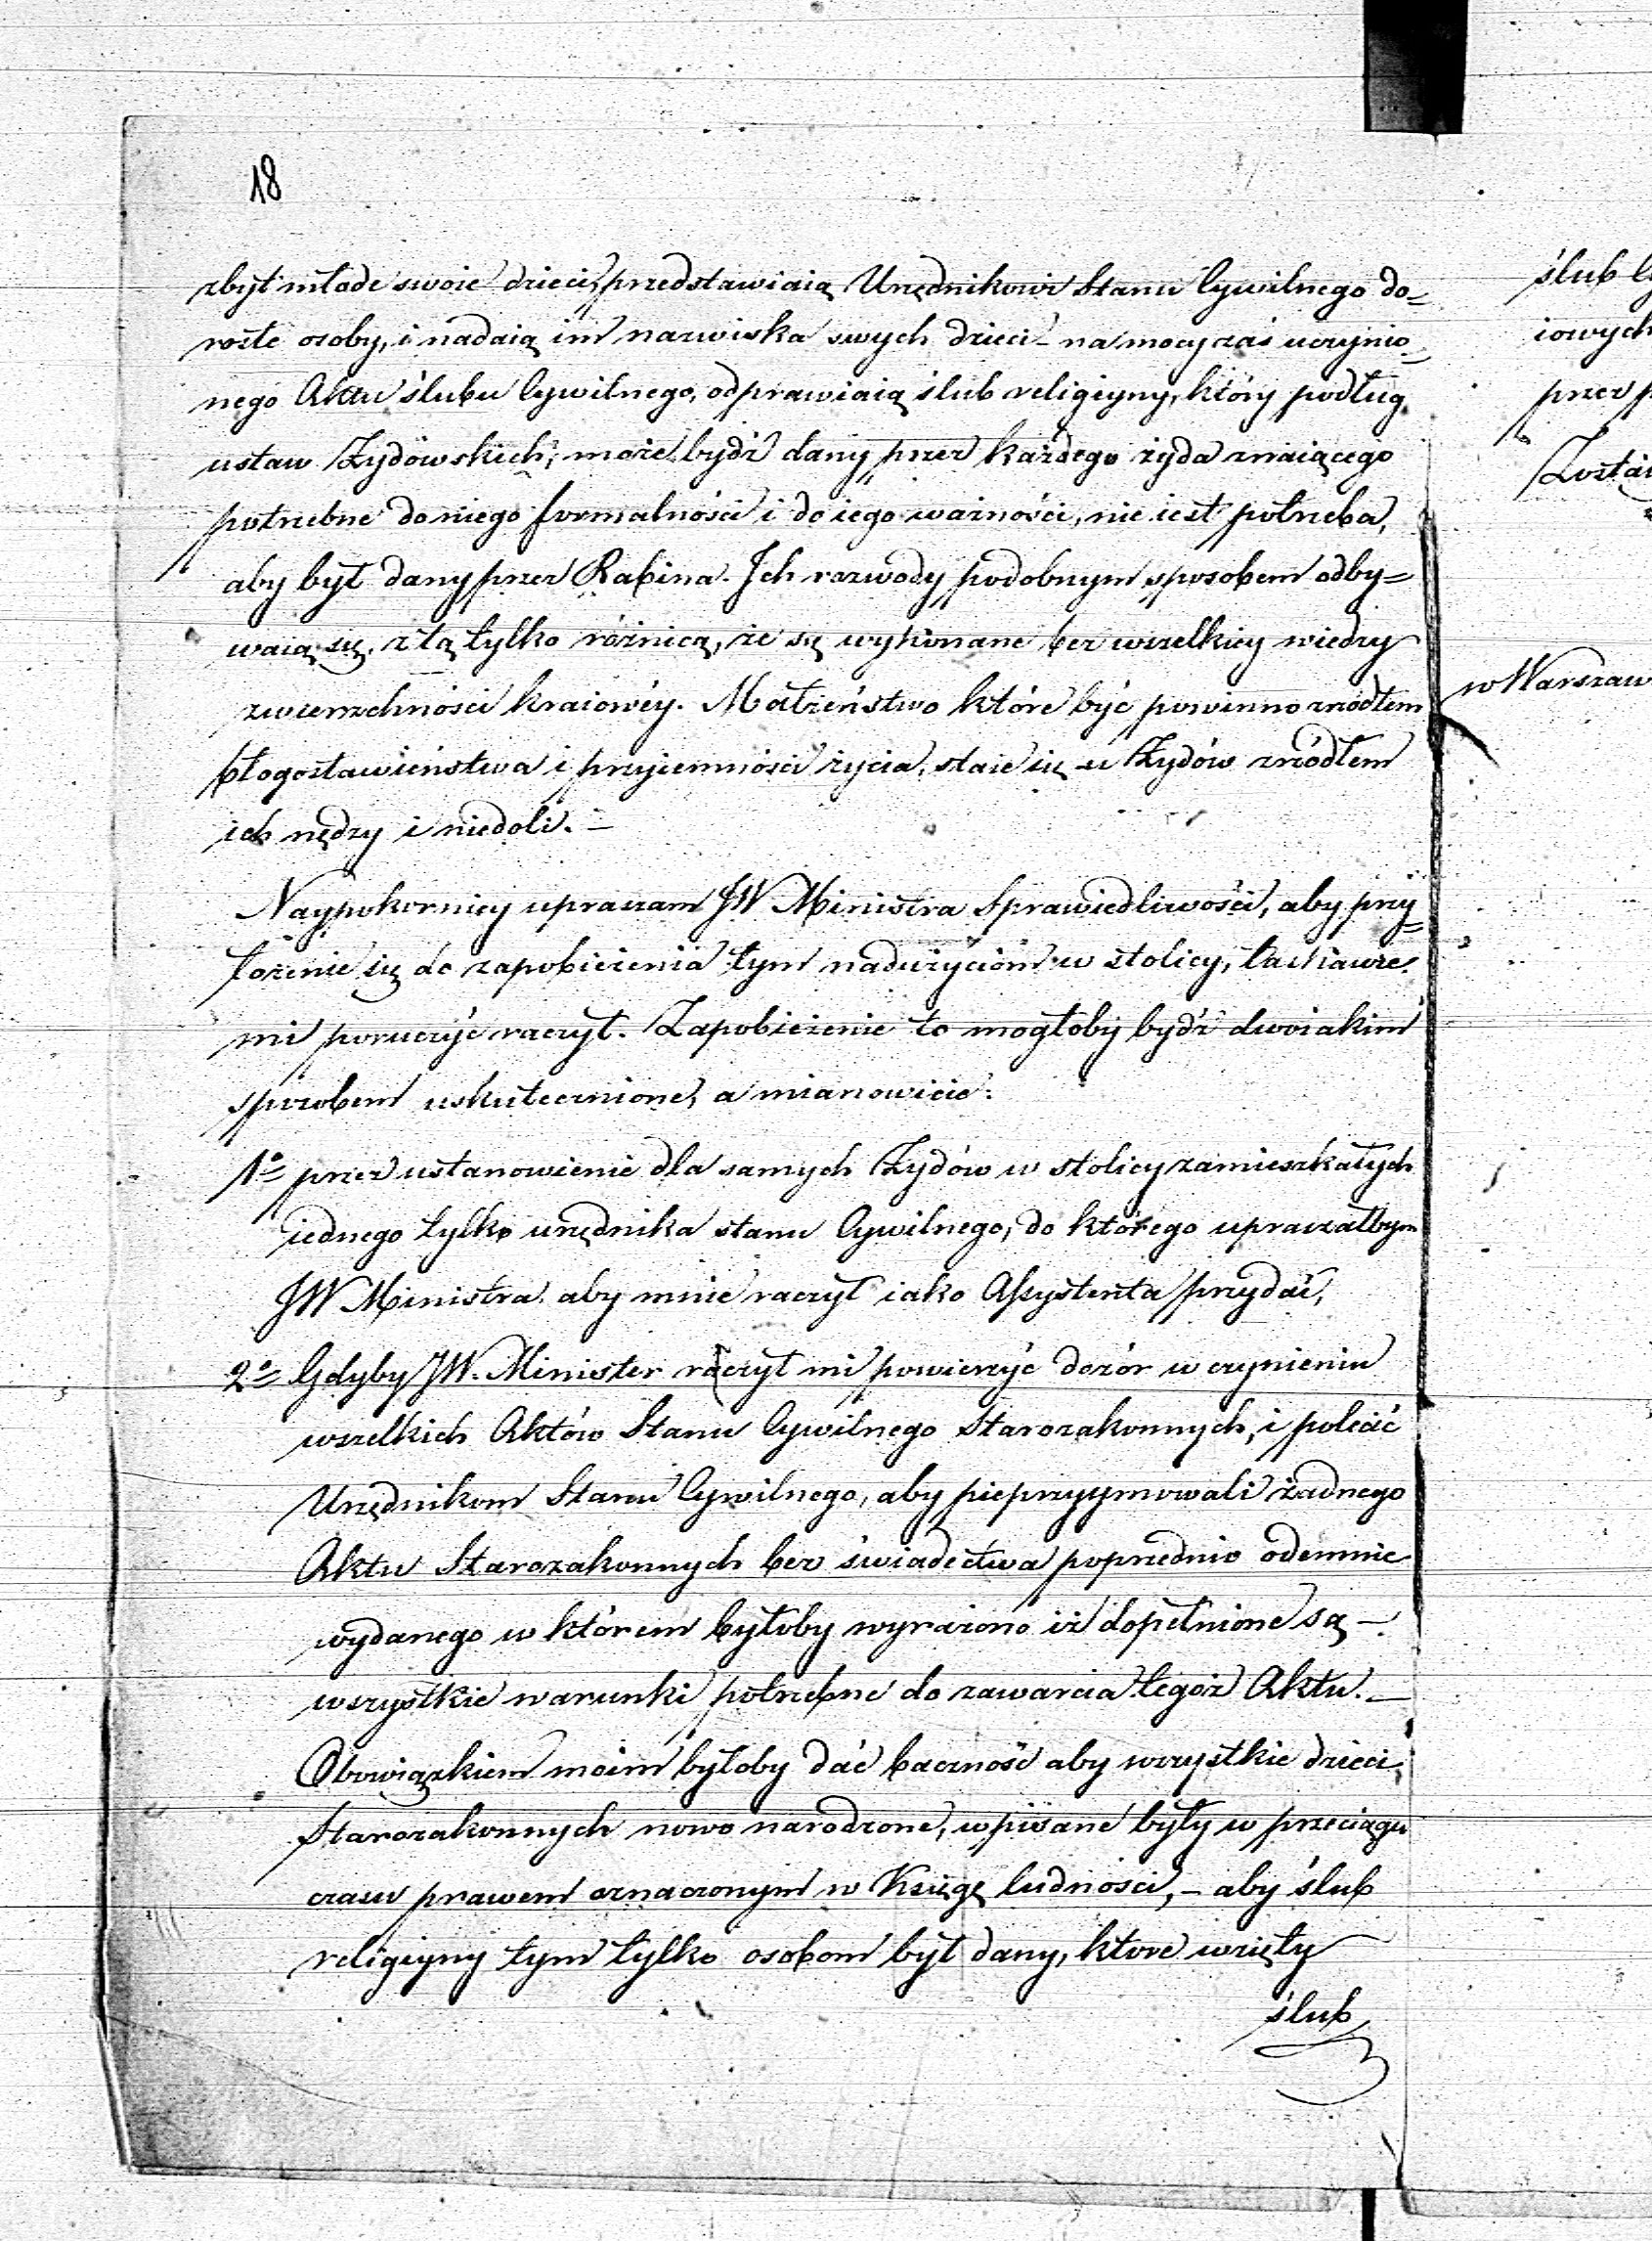 18
zbyt młode swoie dzieci, przedstawiaią Urzędnikowi Stanu Cywilnego do=
rosłe osoby, i nadaią im nazwiska swych dzieci – na mocy zaś uczynio=
nego Aktu ślubu Cywilnego, odprawiaią ślub religiyny, który podług
ustaw Żydowskich, może bydź dany przez każdego żyda znaiącego
potrzebne do niego formalności i do iego ważności, nie iest potrzeba,
aby był dany przez Rabina. Ich rozwody podobnym sposobem odby=
waią się, z tą tylko różnicą, że są wykonane bez wszelkiey wiedzy
zwierzchności kraiowéy. Małżeństwo które być powinno zrzódłem
błogosławieństwa i przyiemności życia, staie się u Żydów zrzódłem
ich nędzy i niedoli. –
Naypokorniey upraszam JW Ministra Sprawiedliwości, aby przy=
łożenie się do zapobieżenia tym nadużyciom w stolicy, łaskawie
mi poruczyć raczył. Zapobieżenie to mogłoby bydź dwoiakim
sposobem uskutecznione, a mianowicie:
1o przez ustanowienie dla samych Żydów w stolicy zamieszkałych
iednego tylko urzędnika stanu Cywilnego, do którego upraszałbym
JW Ministra, aby mnie raczył iako Assystenta przydać,
2o Gdyby JW. Minister raczył mi powierzyć dozór w czynieniu
wszelkich Aktów Stanu Cywilnego Starozakonnych, i polecić
Urzędnikom Stanu Cywilnego, aby nieprzyymowali żadnego
Aktu Starozakonnych bez świadectwa poprzednio odemnie
wydanego w którem byłoby wyrażono iż dopełnione są –
wszystkie warunki potrzebne do zawarcia tegoż Aktu. –
Obowiązkiem moim byłoby dać baczność aby wszystkie dzieci
Starozakonnych nowo narodzone, wpisane były w przeciągu
czasu prawem oznaczonym w Księgę ludności, – aby ślub
religiyny tym tylko osobom był dany, które wzięły
ślub
ślub
iowych
przez
Zostaw
w Warszaw